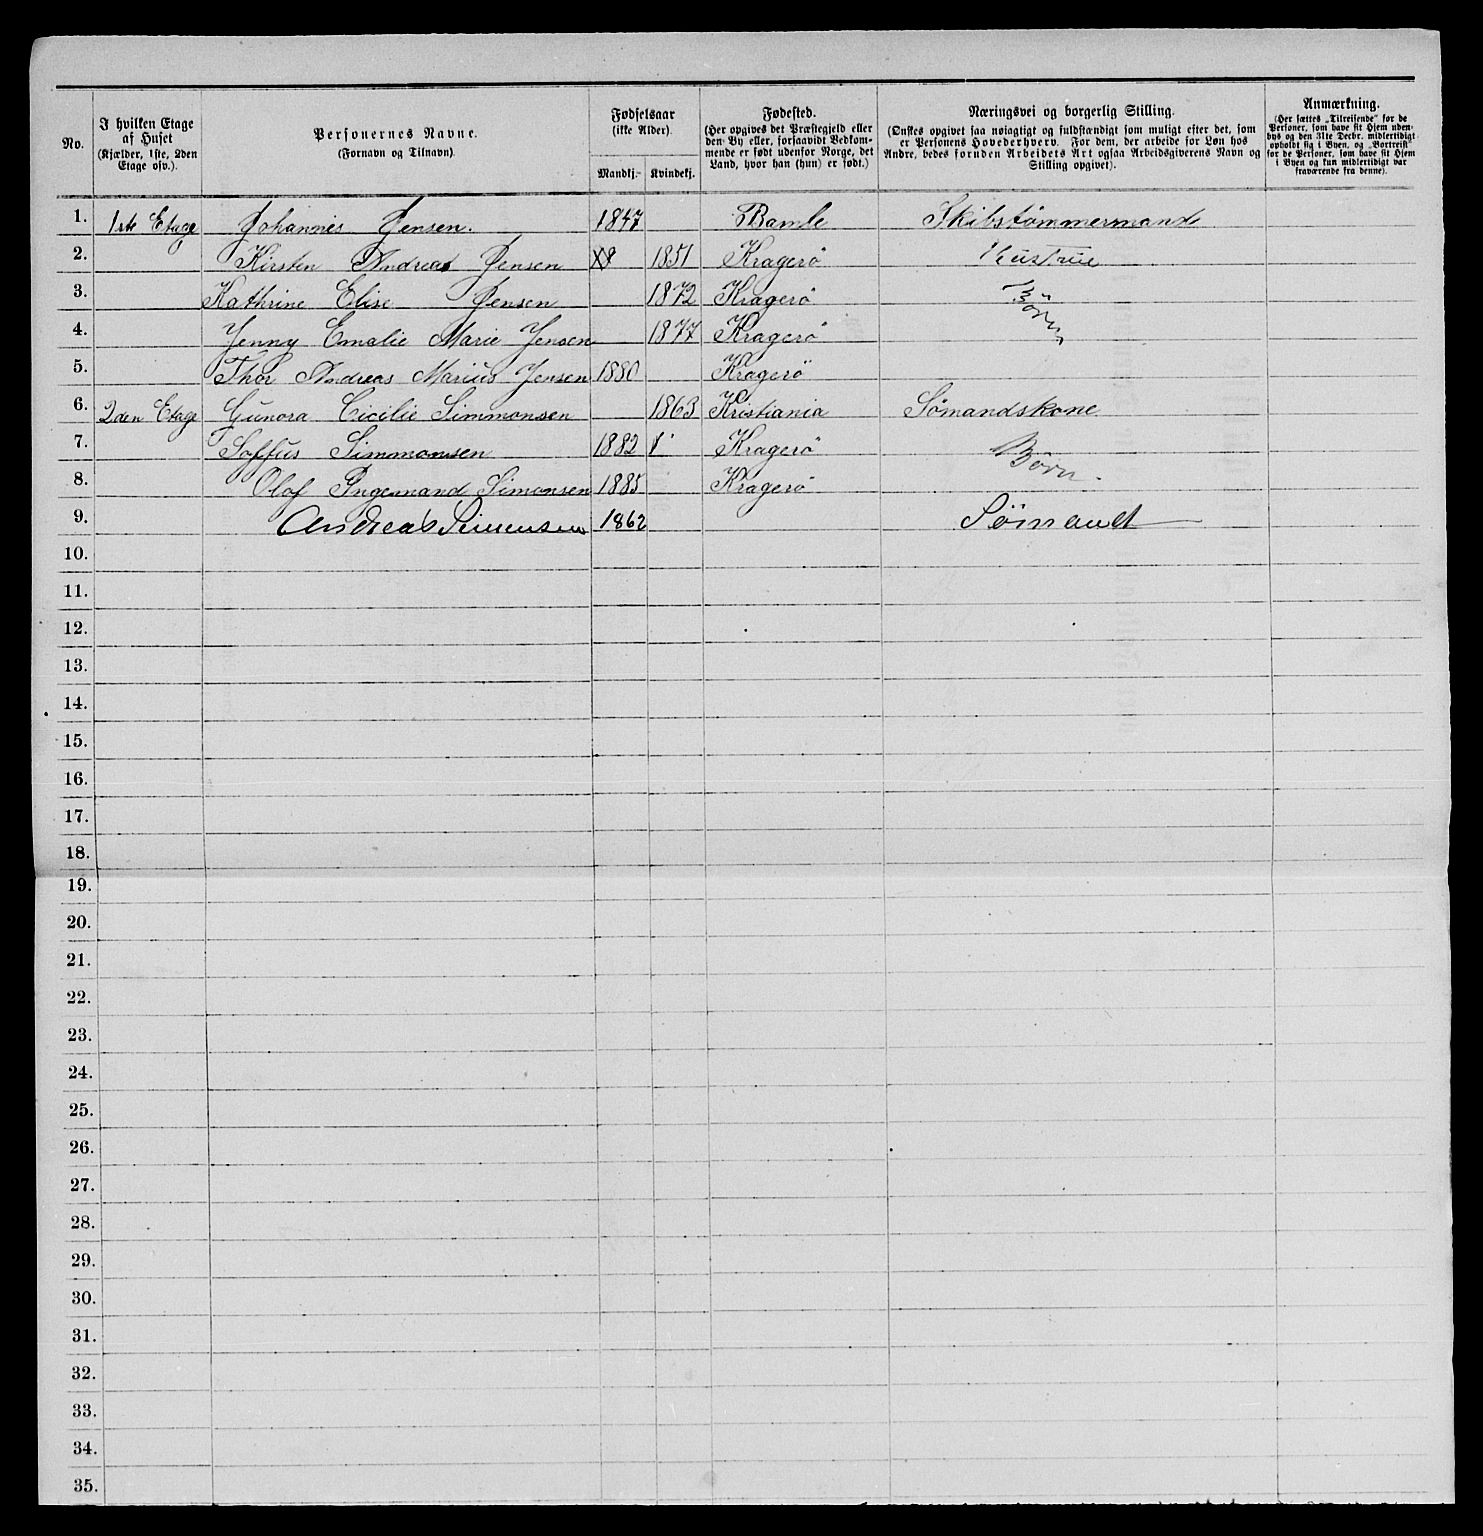 No.
I hvilken Etage af Huset (Kjælder, 1ste, 2den Etage osv.).
Personernes Navne. (Fornavn og Tilnavn).
Fødselsaar (ikke Alder).
Mandkj. Kvindekj.
Fødested. (Her opgives det Præstegjeld eller den By eller, forsaavidt Vedkommende er født udenfor Norge, det Land, hvor han (hun) er født.)
Næringsvei og borgerlig Stilling. (Ønskes opgivet saa nøiagtigt og fuldstændigt som muligt efter det, som er Personens Hovederhverv. For dem, der arbeide for Løn hos Andre, bedes foruden Arbeidets Art ogsaa Arbeidsgiverens Navn og Stilling opgivet).
Anmærkning. (Her sættes „Tilreisende“ for de Personer, som have sit Hjem udenbys og den 31te Decbr. midlertidigt opholdt sig i Byen, og „Bortreist“ for de Personer, som have sit Hjem i Byen og kun midlertidigt var fraværende fra denne).
1. 1ste Etage Johannes Jensen. 1847 Bamle Skibstømmermand
2. Kirsten Andrea Jensen 1851 Kragerö Hustrue
3. Kathrine Elise Jensen 1872 Kragerö Börn
4. Jenny Emalie Marie Jensen 1877 Kragerö
5. Thor Andreas Marius Jensen 1880 Kragerö
6. 2den Etage Gunora Cicilie Simmonsen 1863 Kristiania Sömandskone
7. Soffus Simmonsen 1882 Kragerö Börn.
8. Olaf Ingemand Simonsen 1885 Kragerö
9. Andreas Simensen 1862 Sömandt
10.
11.
12.
13.
14.
15.
16.
17.
18.
19.
20.
21.
22.
23.
24.
25.
26.
27.
28.
29.
30.
31.
32.
33.
34.
35.